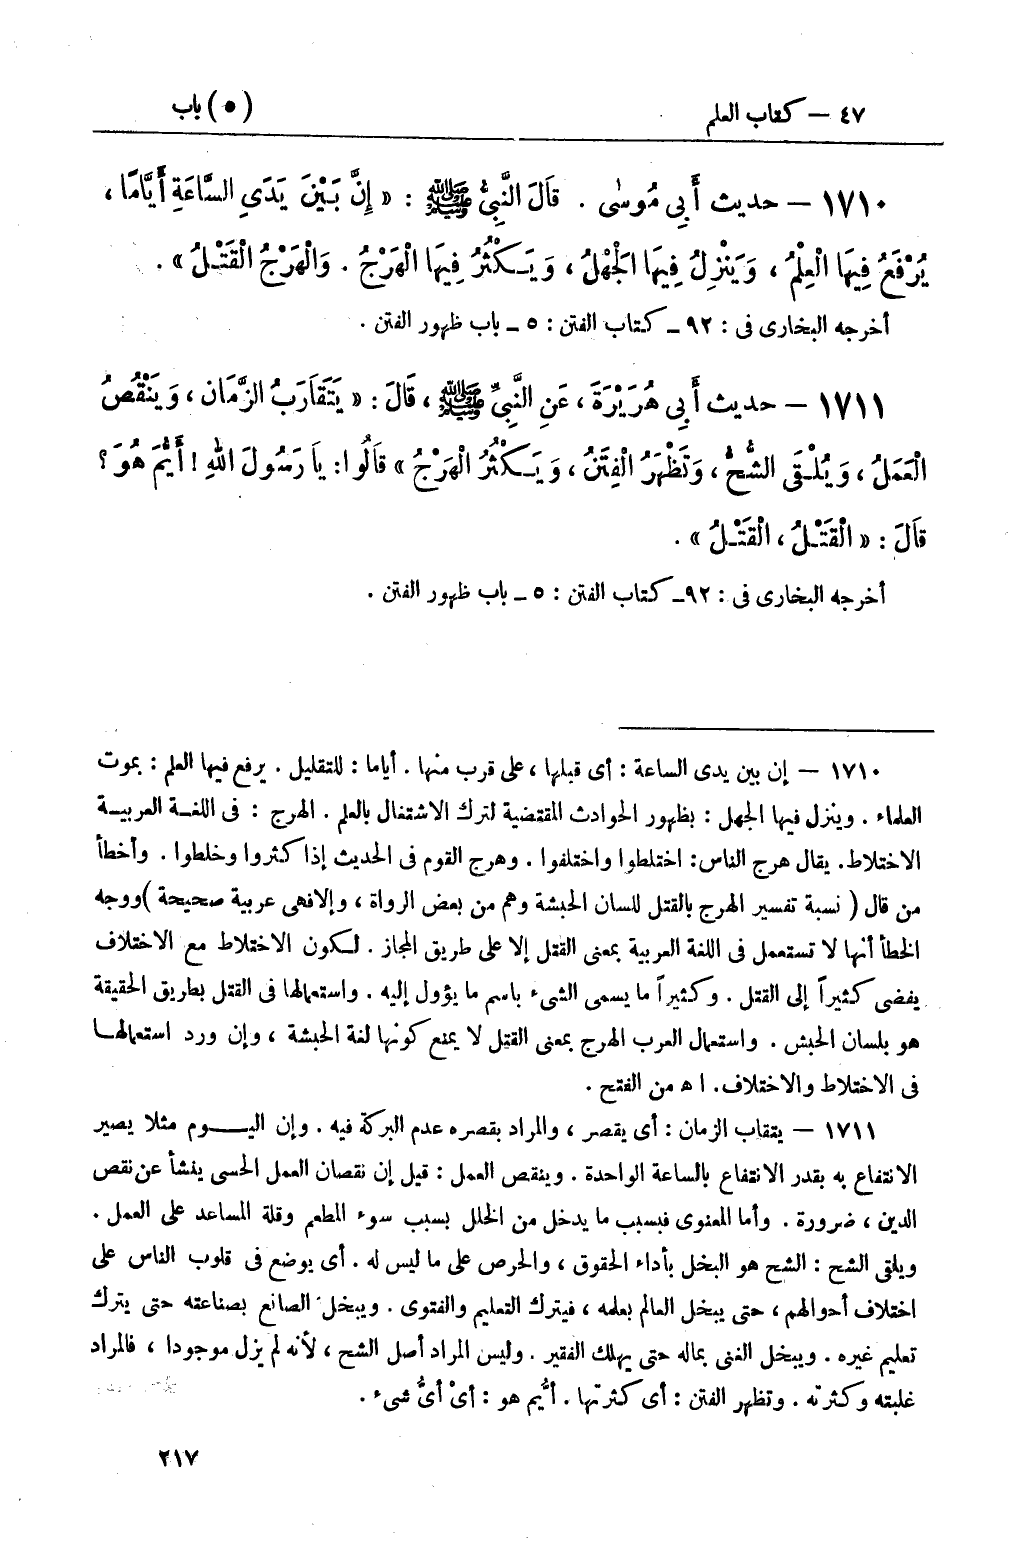 ٤٧ — كتاب العلم
(٥) باب
١٧١٠ — حديث أَبِي مُوسٰى . قَالَ النَّبِيُّ ﷺ : « إِنَّ بَيْنَ يَدَيِ السَّاعَةِ أَيَّامًا ،
يُرْفَعُ فِيهَا الْعِلْمُ ، وَيَنْزِلُ فِيهَا الْجَهْلُ ، وَيَكْثُرُ فِيهَا الْهَرْجُ . وَالْهَرْجُ الْقَتْلُ » .
أخرجه البخارى فى : ٩٢ ـ كتاب الفتن : ٥ ـ باب ظهور الفتن .
١٧١١ — حديث أَبِي هُرَيْرَةَ ، عَنِ النَّبِيِّ ﷺ ، قَالَ : « يَتَقَارَبُ الزَّمَانِ ، وَيَنْقُصُ
الْعَمَلُ ، وَيُلْقَى الشُّحُّ ، وَتَظْهَرُ الْفِتَنُ ، وَيَكْثُرُ الْهَرْجُ » قَالُوا : يَا رَسُولَ اللهِ ! أَيُّمَ هُوَ ؟
قَالَ : « الْقَتْلُ ، الْقَتْلُ » .
أخرجه البخارى فى : ٩٢ـ كتاب الفتن : ٥ ـ باب ظهور الفتن .
١٧١٠ — إن بين يدى الساعة : أى قبلها ، على قرب منها . أياما : للتقليل . يرفع فيها العلم : بموت
العلماء . وينزل فيها الجهل : بظهور الحوادث المقتضية لترك الاشتغال بالعلم . الهرج : فى اللغة العربية
الاختلاط. يقال هرج الناس: اختلطوا واختلفوا . وهرج القوم فى الحديث إذا كثروا وخلطوا . وأخطأ
من قال ( نسبة تفسير الهرج بالقتل للسان الحبشة وهم من بعض الرواة ، وإلافهى عربية صحيحة ) ووجه
الخطأ أنها لا تستعمل فى اللغة العربية بمعنى القتل إلا على طريق المجاز . لكون الاختلاط مع الاختلاف
يفضى كثيراً إلى القتل . وكثيراً ما يسمى الشىء باسم ما يؤول إليه . واستعمالها فى القتل بطريق الحقيقة
هو بلسان الحبش . واستعمال العرب الهرج بمعنى القتل لا يمنع كونها لغة الحبشة ، وإن ورد استعمالها
فى الاختلاط والاختلاف. ا ه من الفتح .
١٧١١ — يتقاب الزمان : أى يقصر ، والمراد بقصره عدم البركة فيه . وإن اليوم مثلا يصير
الانتفاع به بقدر الانتفاع بالساعة الواحدة . وينقص العمل : قيل إن نقصان العمل الحسى ينشأ عن نقص
الدين ، ضرورة . وأما المعنوى فبسبب ما يدخل من الخلل بسبب سوء المطعم وقلة المساعد على العمل .
ويلقى الشح : الشح هو البخل بأداء الحقوق ، والحرص على ما ليس له . أى يوضع فى قلوب الناس على
اختلاف أحوالهم ، حتى يبخل العالم بعلمه ، فيترك التعليم والفتوى . ويبخل الصانع بصناعته حتى يترك
تعليم غيره . ويبخل الغنى بماله حتى يهلك الفقير . وليس المراد أصل الشح ، لأنه لم يزل موجودا ، فالمراد
غلبته وكثرته . وتظهر الفتن : أى كثرتها . أَيُّم هو : أىْ أىُّ شىء .
٢١٧